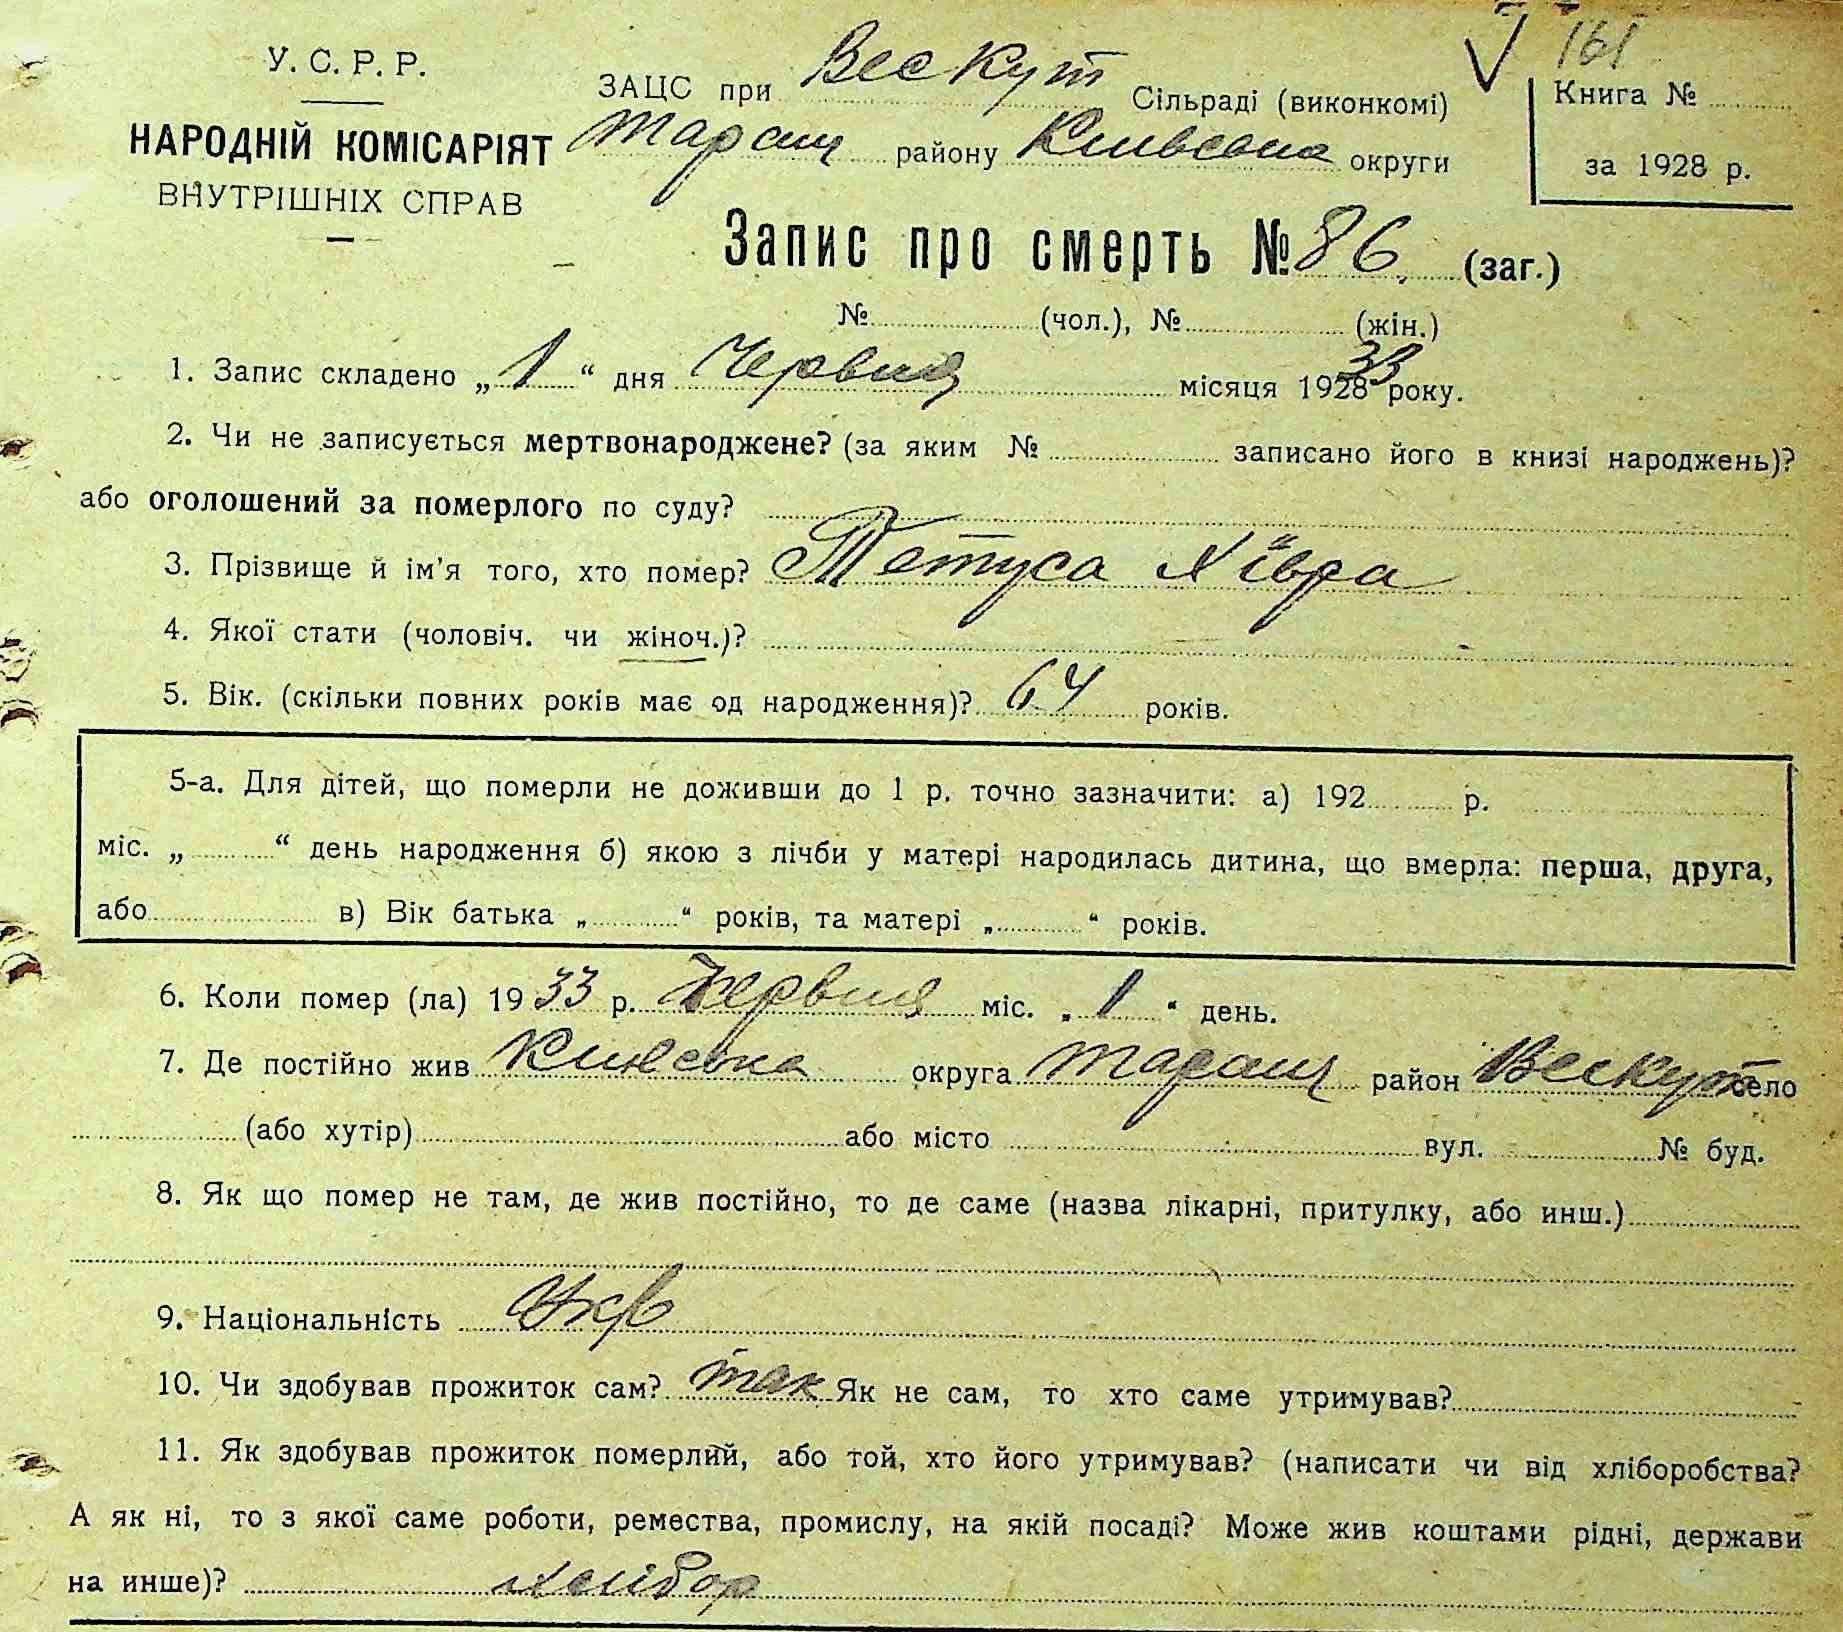 161
У. С. Р. Р.
НАРОДНІЙ КОМІСАРІЯТ
ВНУТРІШНІХ СПРАВ
ЗАЦС при Вескут Сільраді (виконкомі)
Таращ району Київська округи
Книга №
за 1928 р.
Запис про смерть № 86. (заг.)
№ (чол.), № (жін.)
1. Запис складено „1“ дня Червня місяця 1928 33 року.
2. Чи не записується мертвонароджене? (за яким № записано його в книзі народжень)?
або оголошений за померлого по суду?
3. Прізвище й ім'я того, хто помер? Тетуса Хівра
4. Якої стати (чоловіч. чи жіноч.)?
5. Вік. (скільки повних років має од народження)? 64 років.
5-а. Для дітей, що померли не доживши до 1 р. точно зазначити: а) 192 р.
міс. „ “ день народження б) якою з лічби у матері народилась дитина, що вмерла: перша, друга,
або в) Вік батька „ “ років, та матері „ “ років.
6. Коли помер (ла) 1933 р. Червня міс. „1“ день.
7. Де постійно жив Київська округа Таращ район Вескут село
(або хутір) або місто вул. № буд.
8. Як що помер не там, де жив постійно, то де саме (назва лікарні, притулку, або инш.)
9. Національність Укр
10. Чи здобував прожиток сам? так Як не сам, то хто саме утримував?
11. Як здобував прожиток померлий, або той, хто його утримував? (написати чи від хліборобства?
А як ні, то з якої саме роботи, ремества, промислу, на якій посаді? Може жив коштами рідні, держави
на инше)? хлібор